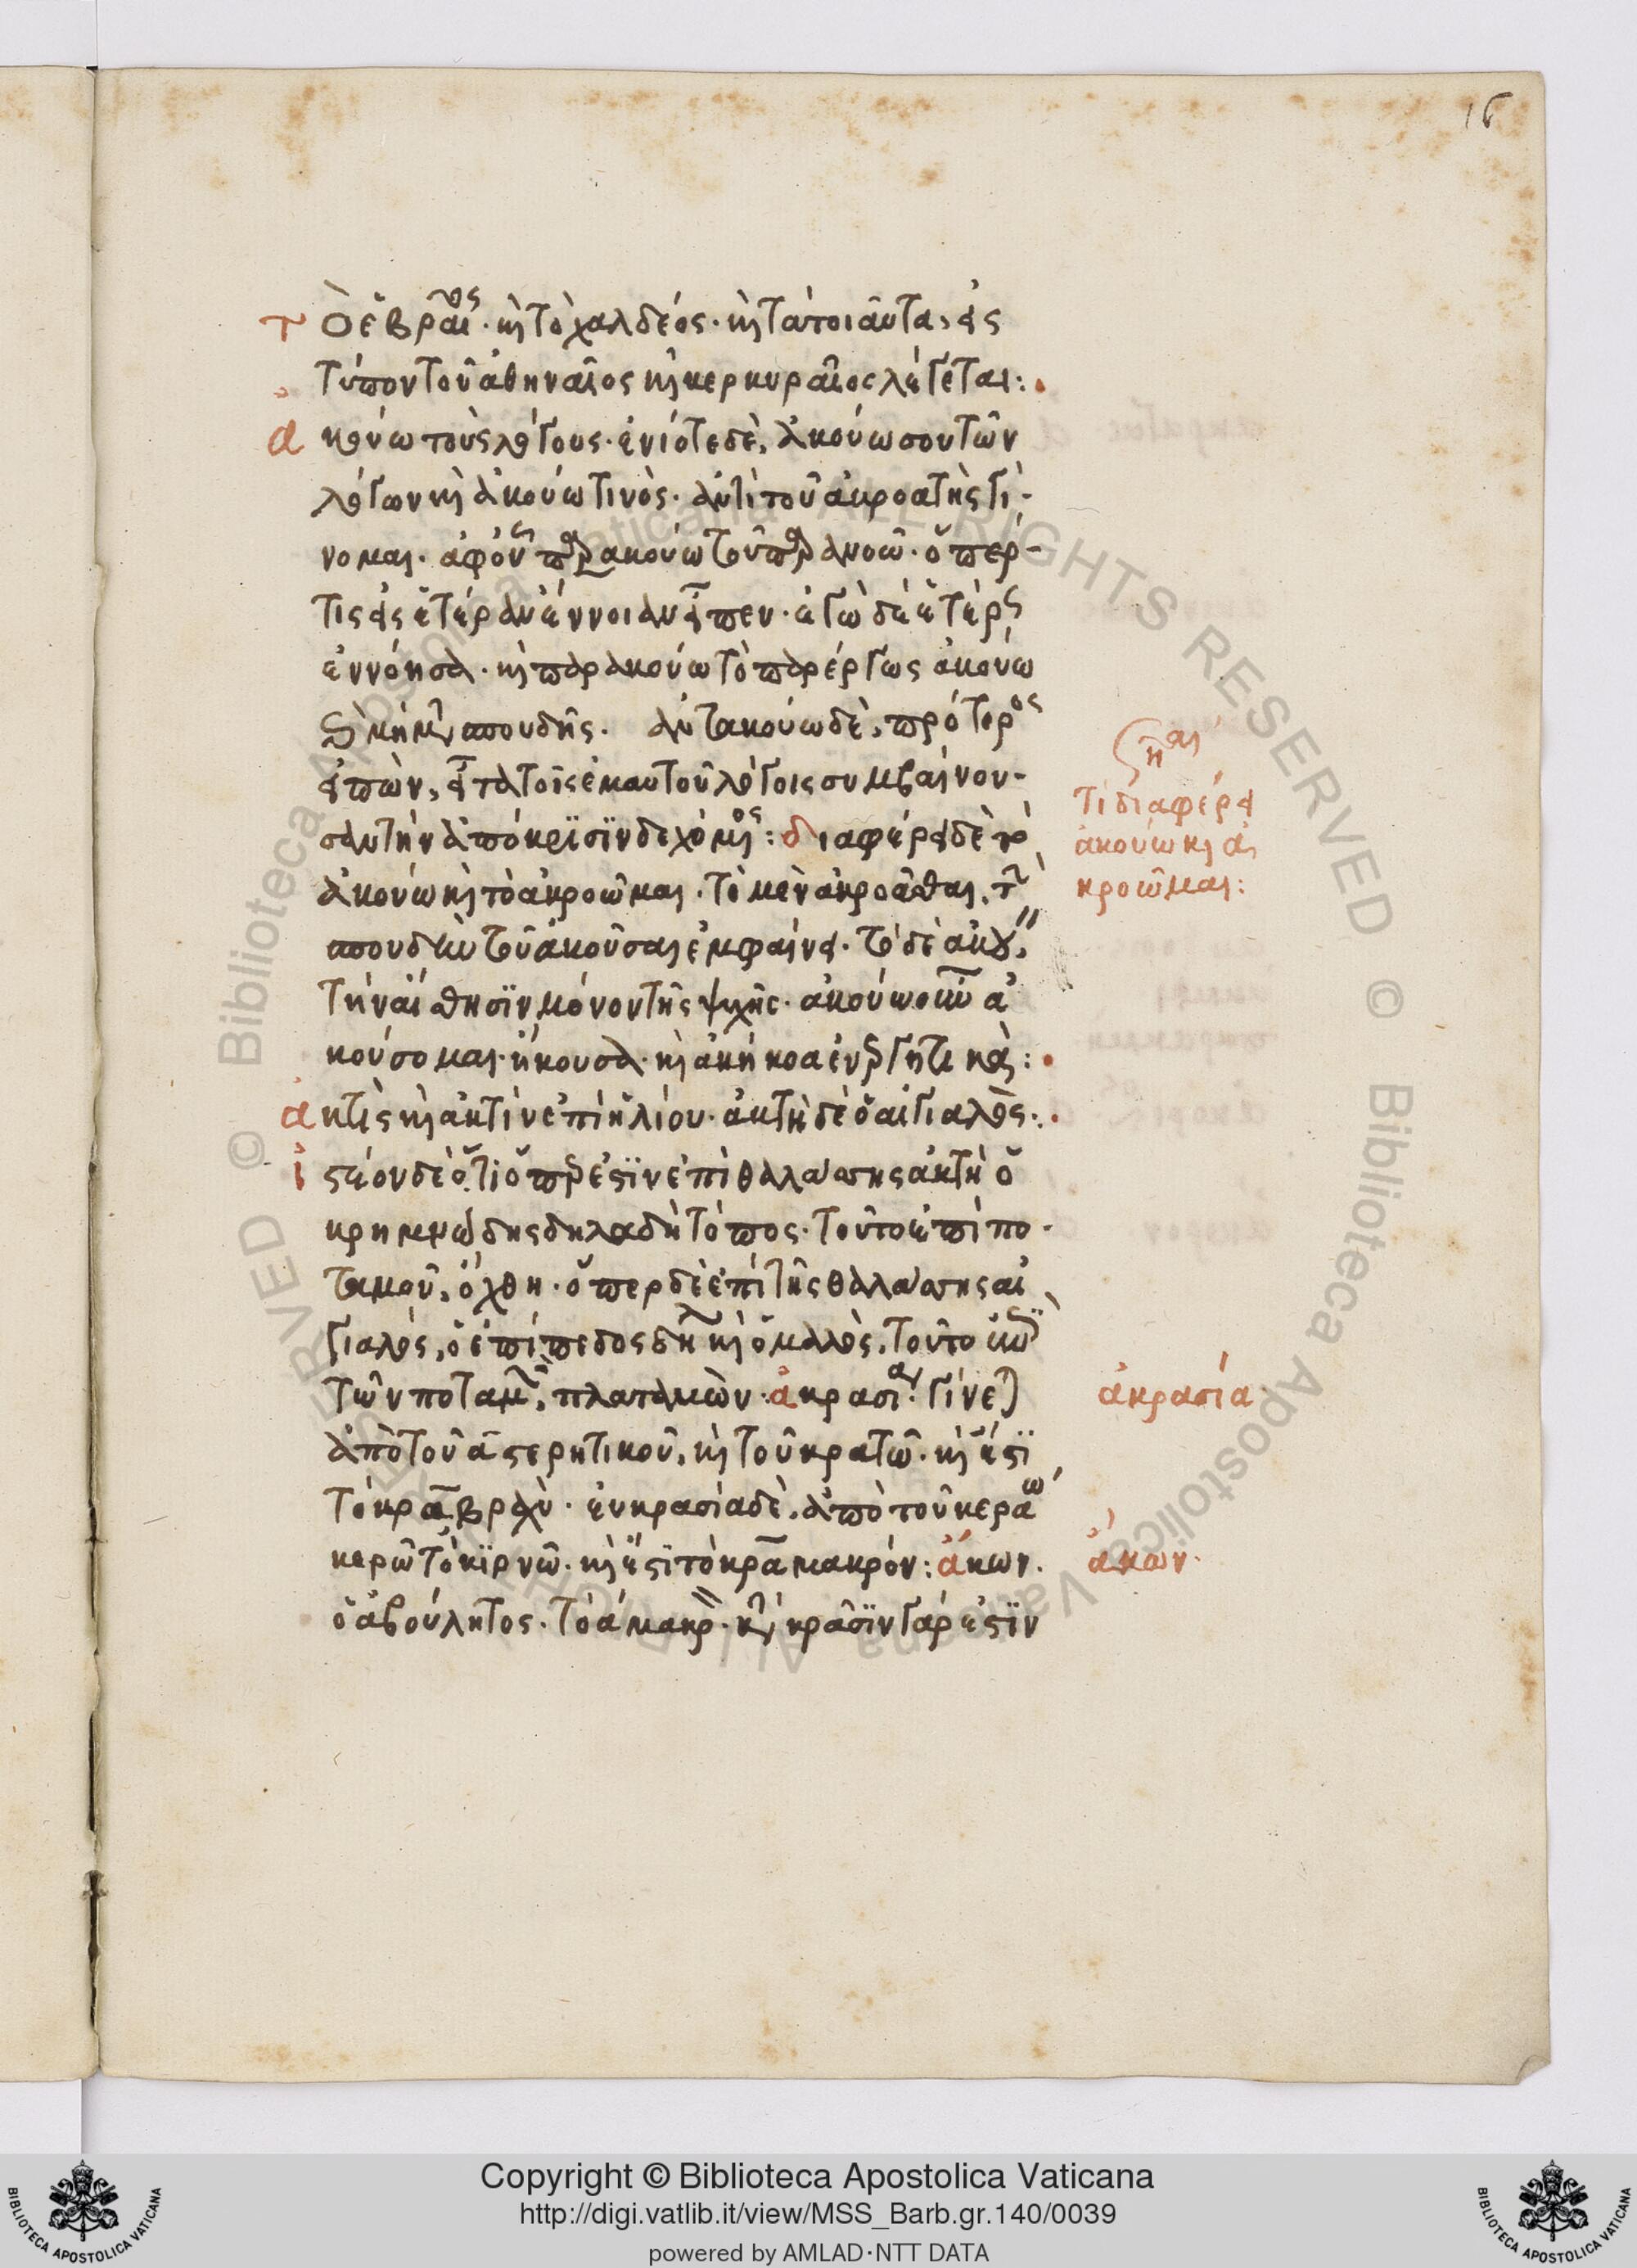 16
Τὸ ἑβραῖος· καὶ τὸ χαλδέος· καὶ τὰ τοιαῦτα, εἰς
τύπον τοῦ ἀθηναῖος καὶ κερκυραῖος λέγεται:
ἀκούω τοὺς λόγους· ἐνίοτε δὲ, ἀκούω σου τῶν
λόγων καὶ ἀκούω τινὸς· ἀντὶ τοῦ ἀκροατὴς γί-
νομαι· ἀφ' οὗ παρακούω τοῦ παρανοῶ· ὅπερ
τις εἰς ἑτέραν ἔννοιαν εἶπεν· ἐγὼ δὲ ἑτέρως
ἐννόησα· καὶ παρακούω τὸ παρέργως ἀκούω
καὶ μὴ μετὰ σπουδῆς. ἀντακούω δὲ, πρότερος
εἰπὼν, εἶτα τοῖς ἐμαυτοῦ λόγοις συμβαίνου-
σαν τὴν ἀπόκρισιν δεχόμενος: διαφέρει δὲ τὸ
ἀκούω καὶ τὸ ἀκροῶμαι· τὸ μὲν ἀκροᾶσθαι, τὴν
σπουδὴν τοῦ ἀκοῦσαι ἐμφαίνει· τὸ δὲ ἀκούειν,
τὴν αἴσθησιν μόνον τῆς ψυχῆς· ἀκούω οὖν ἀ
κούσομαι· ἤκουσα· καὶ ἀκήκοα ἐνεργητικὰ:
ἀκτὶς καὶ ἀκτὶν ἐπὶ ἡλίου· ἀκτὴ δὲ ὁ αἰγιαλὸς:
ἰστέον δὲ ὅτι ὅπερ ἐστὶν ἐπὶ θαλάσσης ἀκτὴ ὁ
κρημνώδης δηλαδὴ τόπος· τοῦτο ἐπὶ πο-
ταμοῦ, ὄχθη· ὅπερ δὲ ἐπὶ τῆς θαλάσσης αἰ
γιαλός, ὁ ἐπίπεδος δηλαδὴ καὶ ὁμαλὸς, τοῦτο ἐπὶ
τῶν ποταμῶν, πλαταμὼν· ἀκρασία· γίνεται
ἀπὸ τοῦ ᾱ στερητικοῦ, καὶ τοῦ κρατῶ· καὶ ἔστι
τὸ κρα βραχὺ· εὐκρασία δὲ, ἀπὸ τοῦ κεράω
κερῶ τὸ κιρνῶ· καὶ ἔστι τὸ κρα μακρόν: ἄκων·
ὁ ἀβούλητος· τὸ ἀ μακρὸν· κατὰ κρᾶσιν γάρ ἐστιν
τί διαφέρει
ἀκούω καὶ ἀ
κροῶμαι:
ἀκρασία
ἄκων·
Copyright © Biblioteca Apostolica Vaticana
http://digi.vatlib.it/view/MSS_Barb.gr.140/0039
powered by AMLAD·NTT DATA
BIBLIOTECA APOSTOLICA VATICANA
BIBLIOTECA APOSTOLICA VATICANA